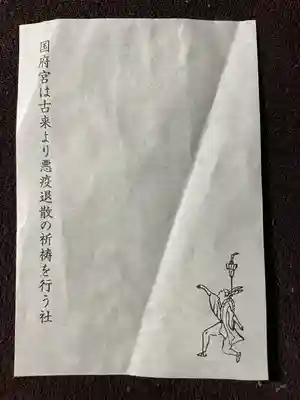 国府宮は古来より悪疫退散の祈祷を行う社